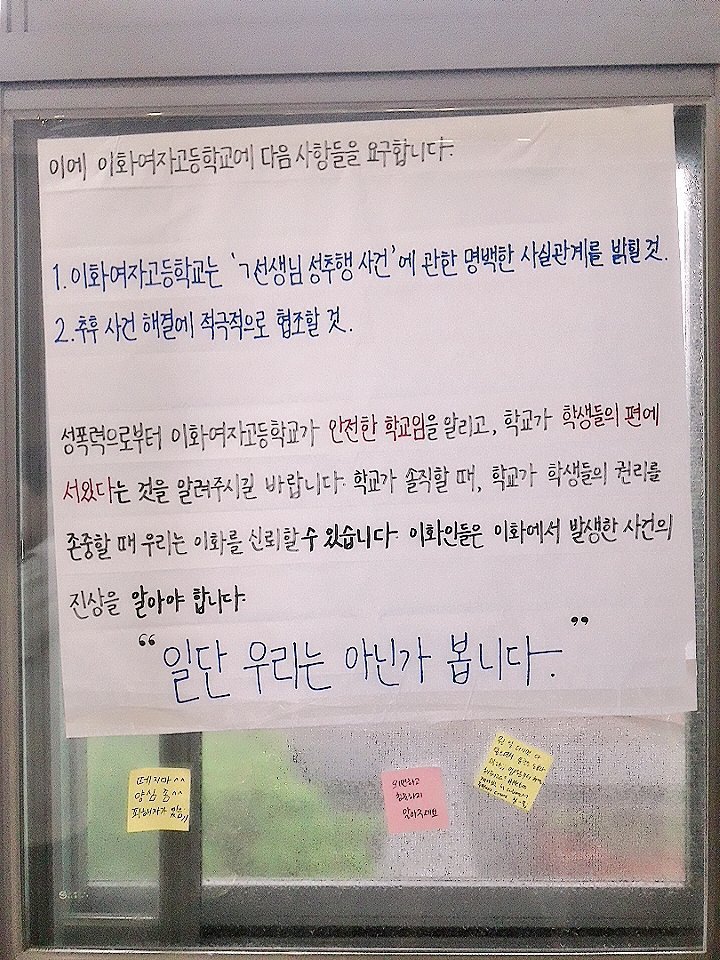 이에 이화여자고등학교에 다음 사항들을 요구합니다.
1. 이화여자고등학교는 'ㄱ선생님 성추행 사건'에 관한 명백한 사실관계를 밝힐 것.
2. 추후 사건 해결에 적극적으로 협조할 것.
성폭력으로부터 이화여자고등학교가 안전한 학교임을 알리고, 학교가 학생들의 편에
서있다는 것을 알려주시길 바랍니다. 학교가 솔직할 때, 학교가 학생들의 권리를
존중할 때 우리는 이화를 신뢰할 수 있습니다. 이화인들은 이화에서 발생한 사건의
진상을 알아야 합니다.
“일단 우리는 아닌가 봅니다.”
떼지마^^
양심 좀^^
피해자가 있음
외면하고
침묵하지
말아주세요